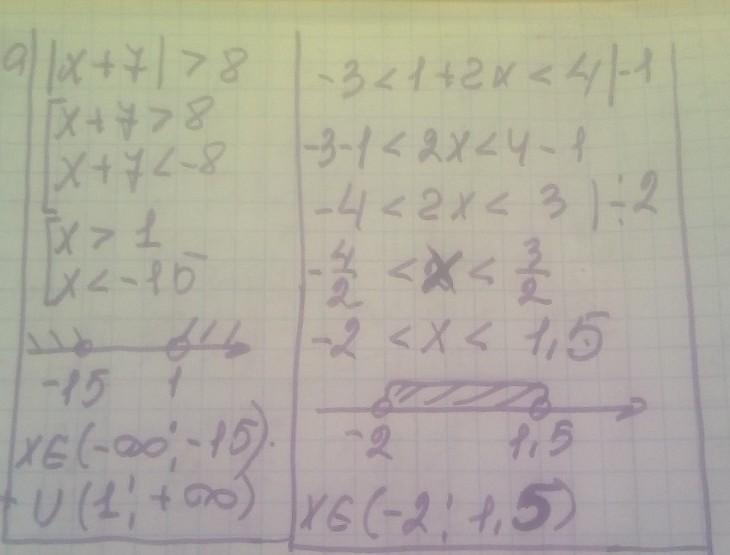 а) |x+7| > 8
x+7 > 8
x+7 < -8
x > 1
x < -15
-15 1
x∈(-∞; -15)
∪(1; +∞)
-3 < 1+2x < 4 |-1
-3-1 < 2x < 4-1
-4 < 2x < 3 | ÷2
-4/2 < x < 3/2
-2 < x < 1,5
-2 1,5
x∈(-2; 1,5)